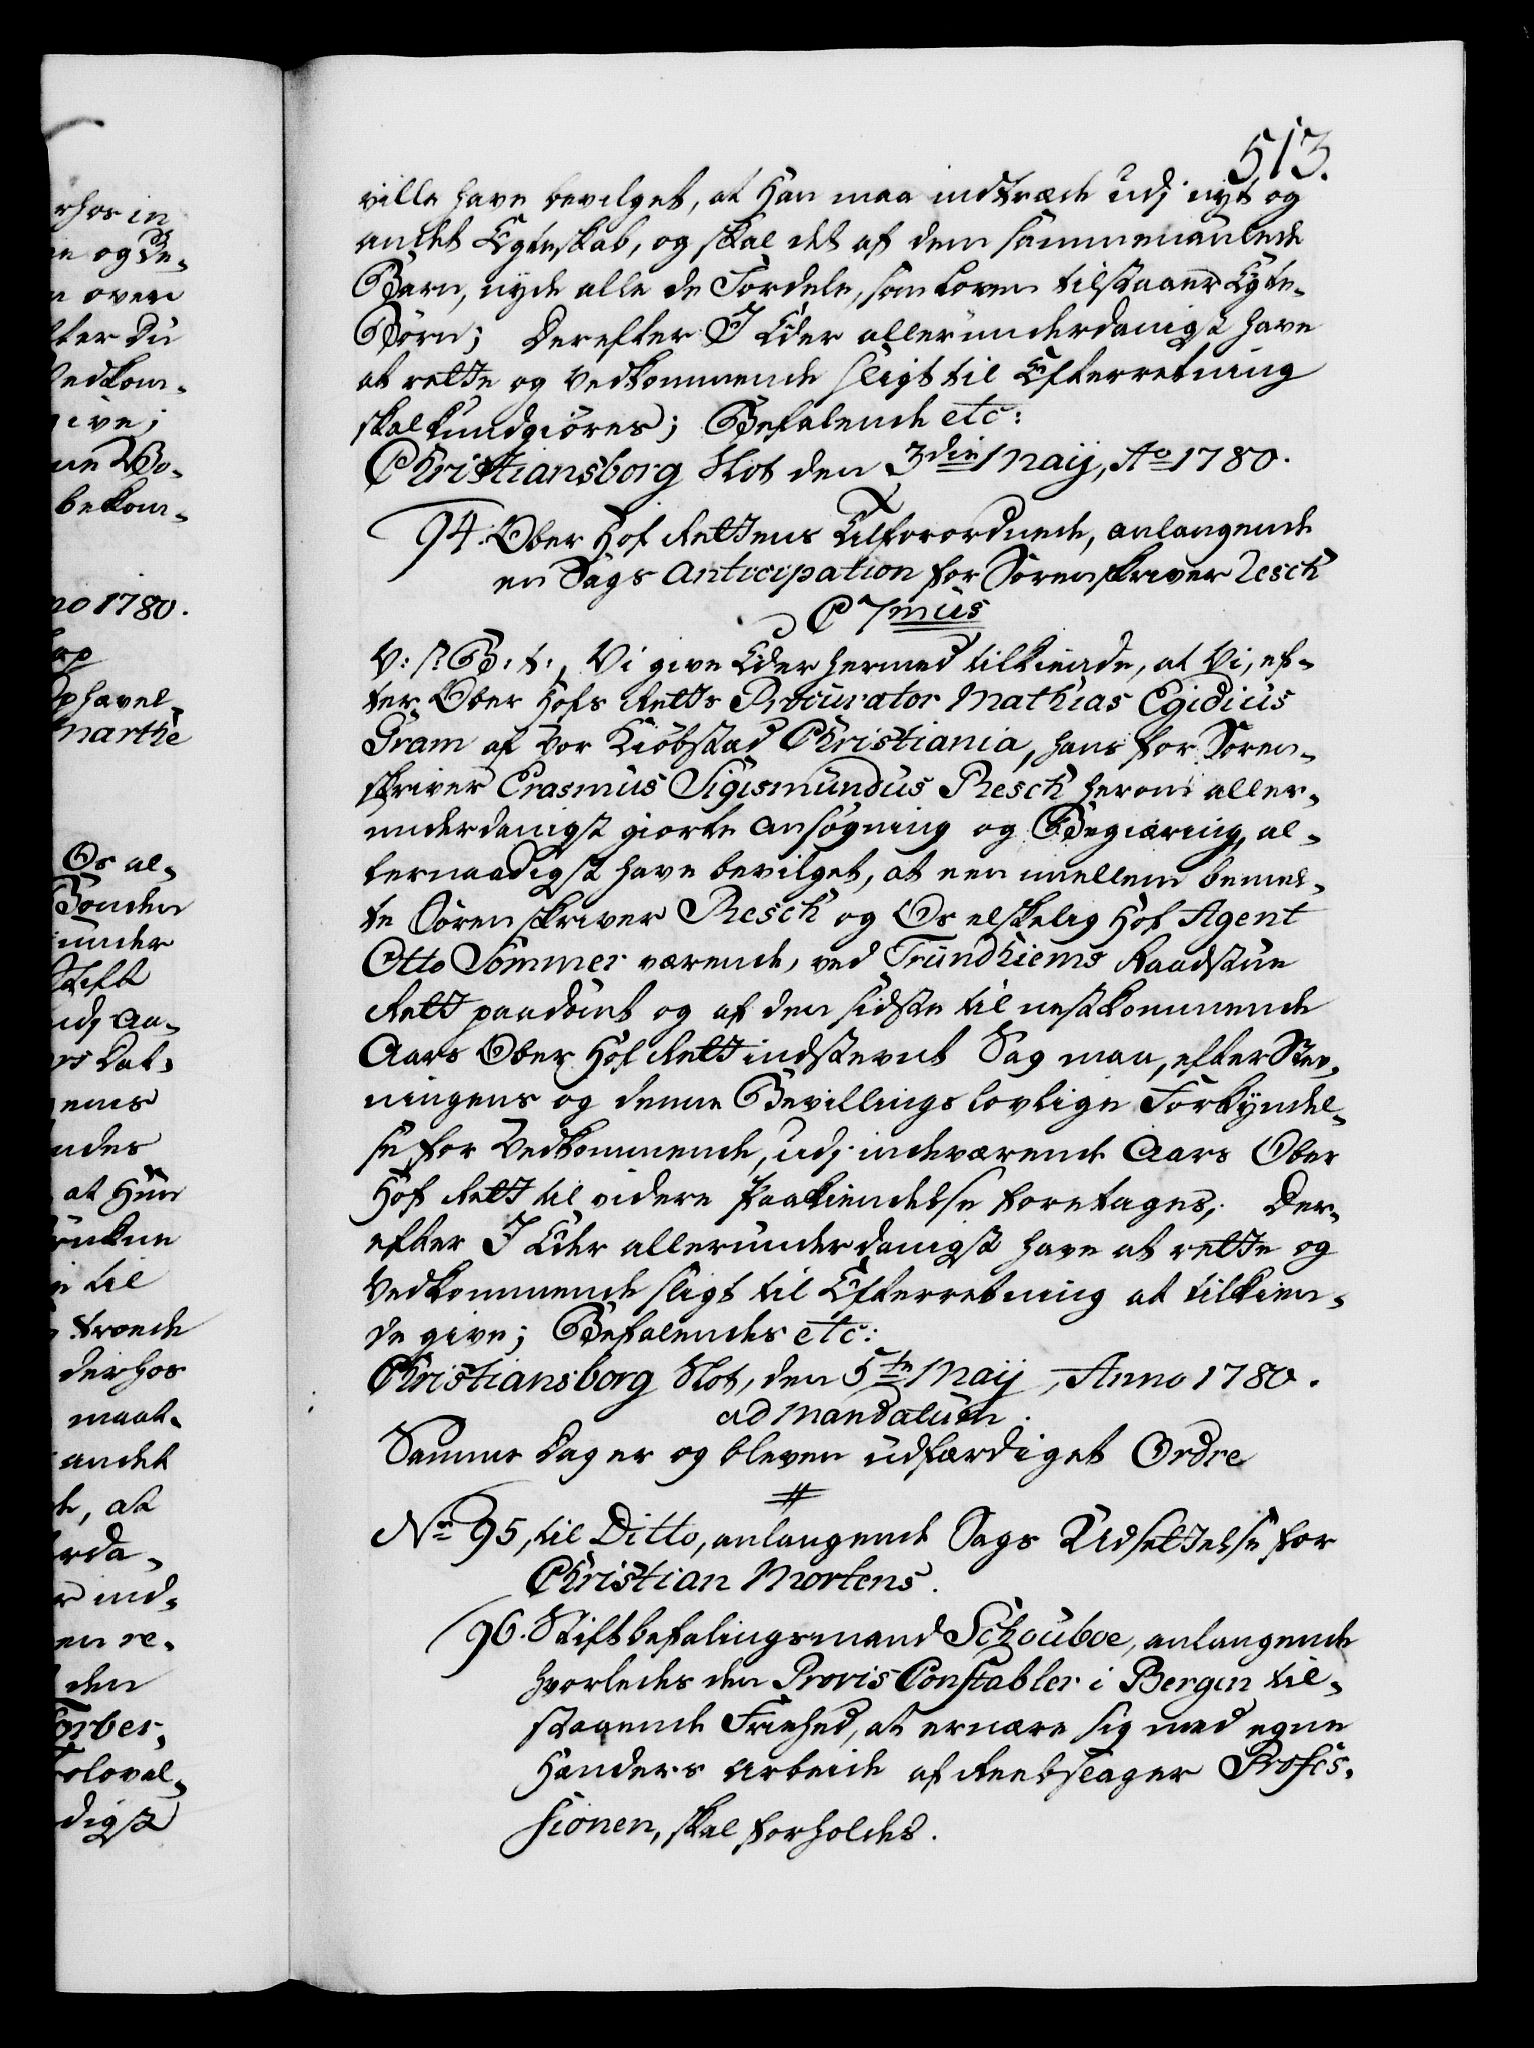 513.
ville have bevilget, at Han maa indtræde udj nyt og
andet Egteskab, og skal det af dem sammenavlede
Barn, nyde alle de Fordele, som Loven tilstaaer Egte-
Børn; Derefter I Eder allerunderdanigst have
at rette og Vedkommende sligt til Efterretning
skal kundgiøres; Befalende etc:
Christiansborg Slot den 3die Maij, Ao 1780.
94. Ober Hof Rettens Tilforordnede, anlangende
en Sags Anticipation for Sorenskriver Resch
C 7mus
V: s: G: t:, Vi give Eder hermed tilkiende, at Vi, ef-
ter Ober Hofs Retts Procurator Mathias Egidius
Gram af Vor Kiøbstad Christiania, hans for Soren-
skriver Erasmus Sigismundus Resch herom aller-
underdanigst giorte Ansøgning og Begiæring, al-
lernaadigst have bevilget, at een imellem bemel-
te Sorenskriver Resch og Os elskelig Hof Agent
Otto Sommer værende, ved Trundhiems Raadstue
Rett paadømt og af den sidste til nestkommende
Aars Ober Hof Rett indstevnt Sag maa, efter Stev-
ningens og denne Bevillings lovlige Forkyndel-
se for Vedkommende, udj indeværende Aars Ober
Hof Rett til videre Paakiendelse foretages; Der-
efter I Eder allerunderdanigst have at rette og
Vedkommende sligt til Efterretning at tilkien-
de give; Befalendes etc:
Christiansborg Slot, den 5te Maij, Anno 1780.
ad Mandatum.
Samme Dag er og bleven udfærdiget Ordre
#
No 95, til Ditto, anlangende Sags Udsettelse for
Christian Mortens.
96. Stiftbefalingsmand Schouboe, anlangende
hvorledes den Provis Constabler i Bergen til-
staaende Friehed, at ernære sig med egne
Hænders Arbeide af Reebslager Profes-
sionen, skal forholdes.